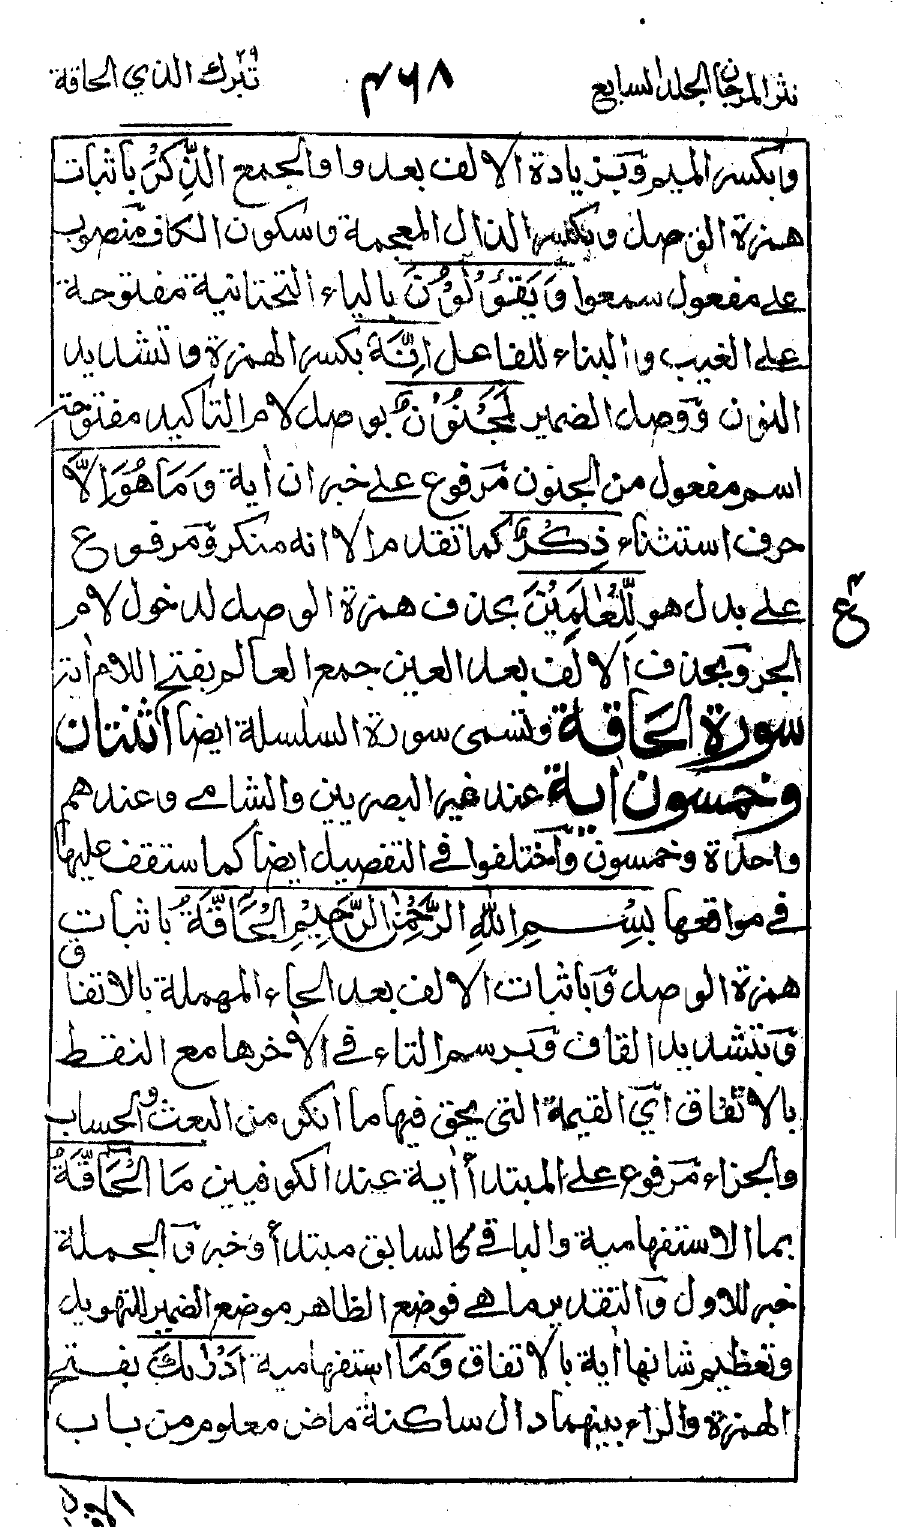 نثر المرجان الجلد السابع
٤٦٨
تبرك الذي ٢٩ الحاقة
وبكسر الميم وبزيادة الالف بعد واو الجمع الذِّكْرَ باثبات
همزة الوصل وبكسر الذال المعجمة وسكون الكاف منصوب
على مفعول سمعوا وَيَقُوْلُوْنَ بالياء التحتانية مفتوحة
على الغيب والبناء للفاعل اِنَّهٗ بكسر الهمزة وتشديد
النون ووصل الضمير لَمَجْنُوْنٌ بوصل لام التاكيد مفتوحة
اسم مفعول من الجنون مرفوع على خبر ان أية وَمَا هُوَ اِلَّا
حرف استثناء ذِكْرٌ كما تقدم الا انه منكر ومرفوع
على بدل هو لِّلْعٰلَمِيْنَ بحذف همزة الوصل لدخول لام
الجر وبحذف الالف بعد العين جمع العالم بفتح اللام أية
سورة الحاقة وتسمى سورة السلسلة ايضا اثنتان
وخمسون أية عند غير البصريين والشامي وعندهم
واحدة وخمسون واختلفوا في التفصيل ايضا كما ستقف عليها
في مواقعها بِسْمِ اللهِ الرَّحْمٰنِ الرَّحِيْمِ اَلْحَاقَّةُ باثبات
همزة الوصل وباثبات الالف بعد الحاء المهملة بالاتفاق
وبتشديد القاف وبرسم التاء في الأخرها مع النقط
بالاتفاق اي القيمة التي يحق فيها ما انكر من البعث والحساب
والجزاء مرفوع على المبتدأ أية عند الكوفيين مَا الْحَاقَّةُ
بما الاستفهامية والباقي كالسابق مبتدأ وخبر والجملة
خبر للاول والتقدير ما هي فوضع الظاهر موضع الضمير للتهويل
وتعظيم شانها أية بالاتفاق وَمَا استفهامية اَدْرٰىكَ بفتح
الهمزة والراء بينهما دال ساكنة ماض معلوم من باب
ع